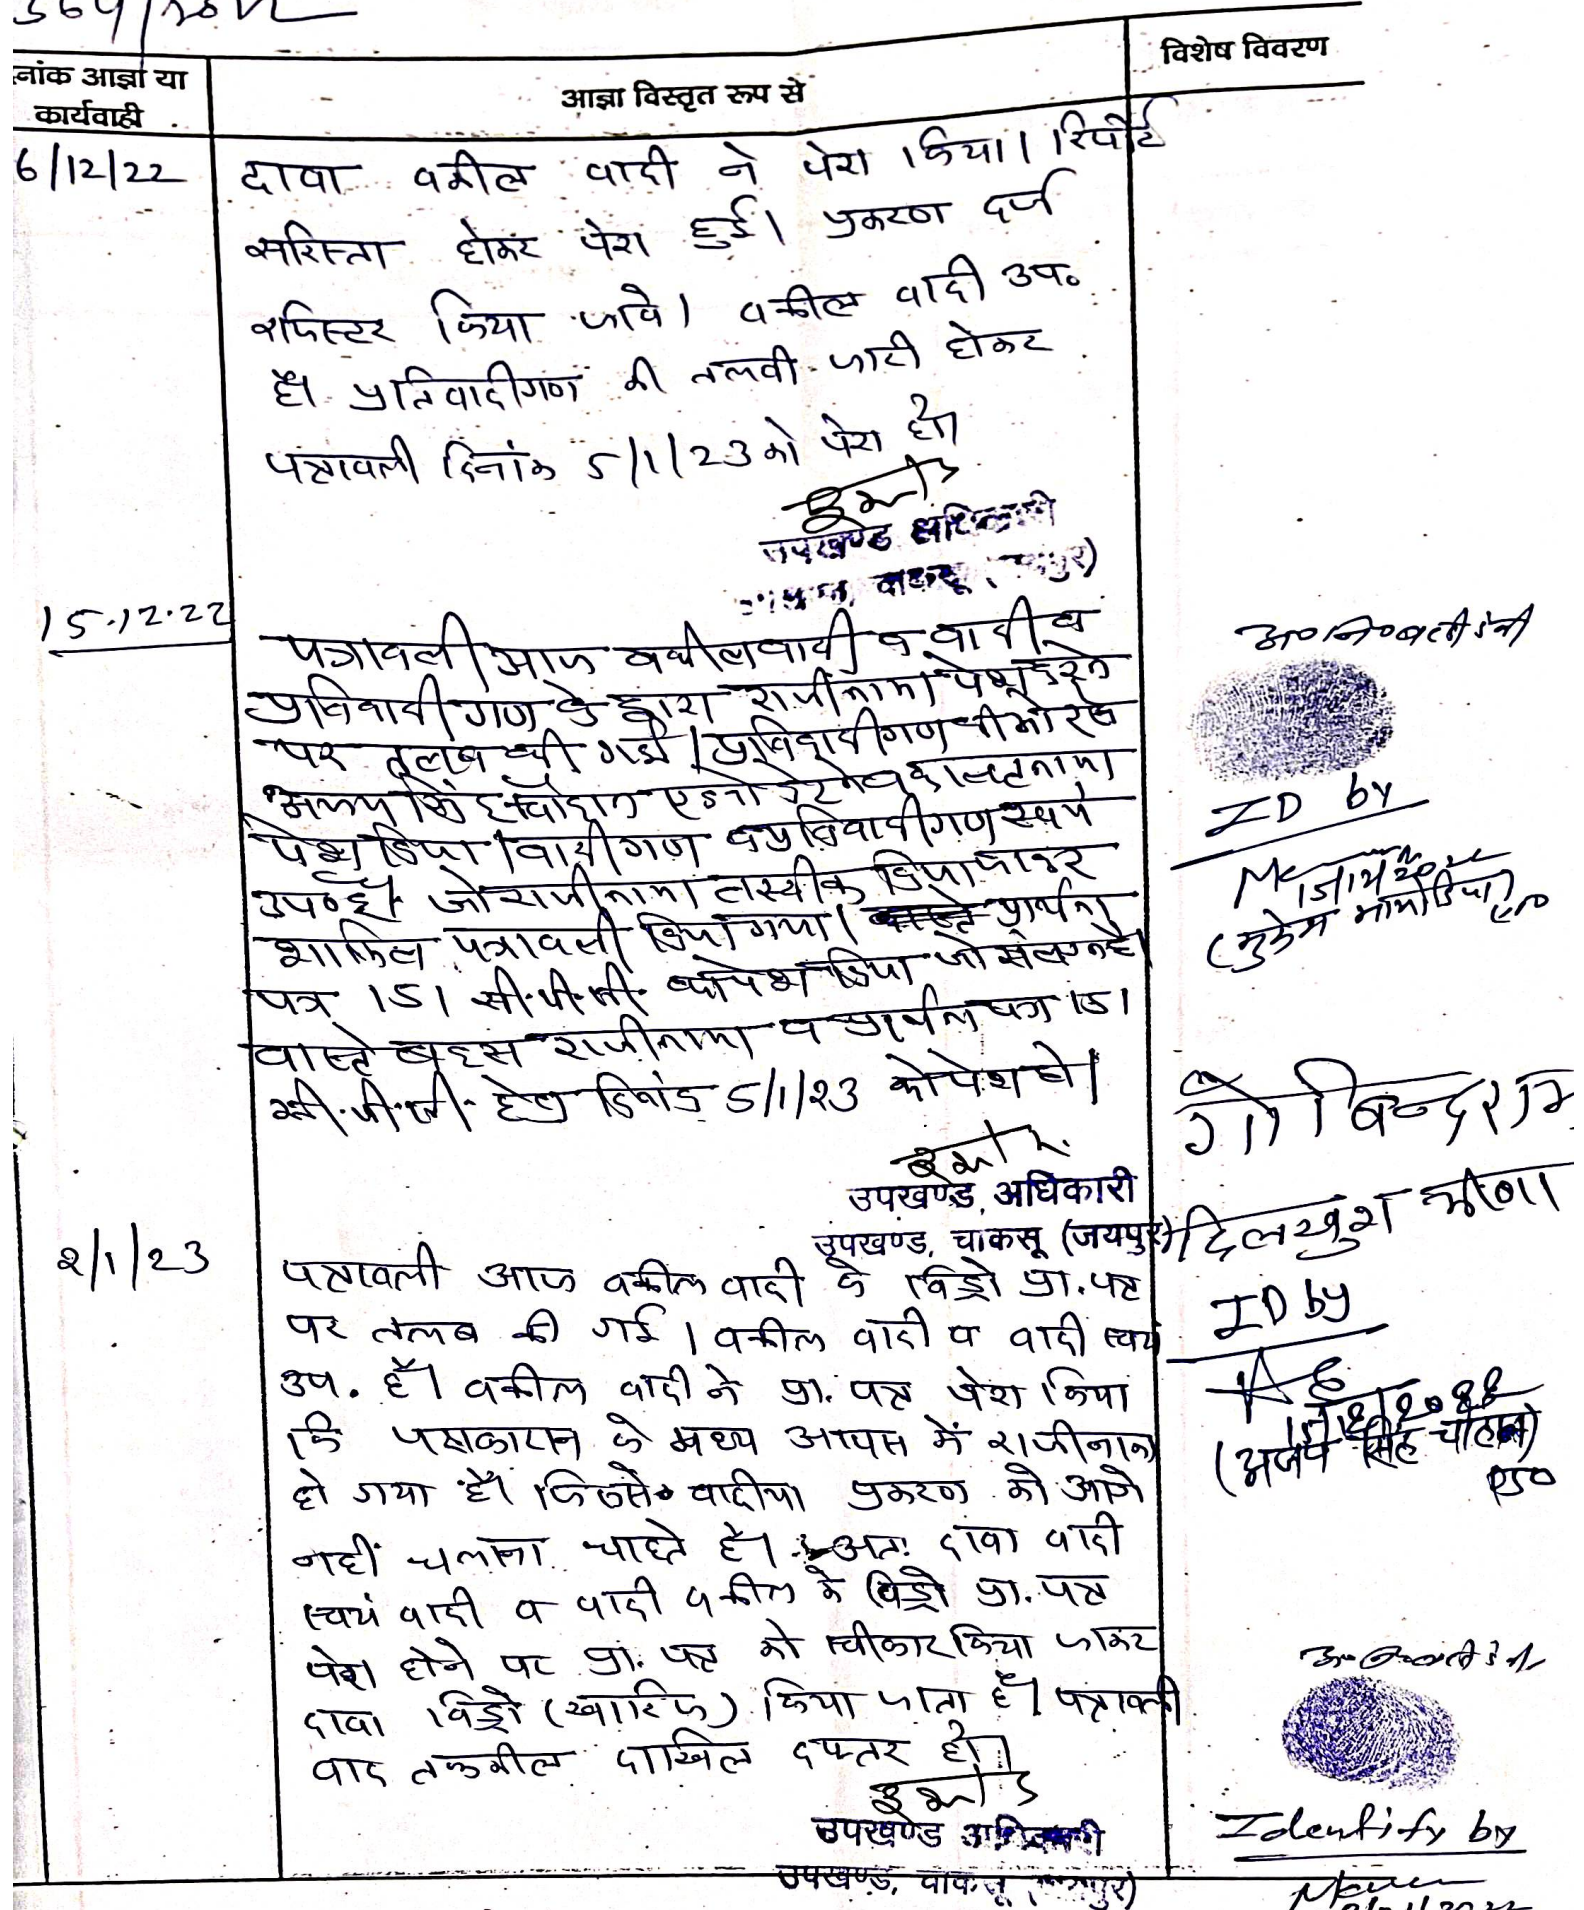 नांक आज्ञा या
कार्यवाही
आज्ञा विस्तृत रूप से
विशेष विवरण
6/12/22
दावा वकील वादी ने पेश किया। रिपोर्ट
सरिस्ता होकर पेश हुई। प्रकरण दर्ज
रजिस्टर किया जावे। वकील वादी उप०
है। प्रतिवादीगण की तलवी जारी होकर
पत्रावली दिनांक 5/1/23 को पेश हो।
उपखण्ड अधिकारी
चाकसू
15.12.22
पत्रावली आज वकील वादी व वादी व
प्रतिवादीगण के द्वारा राजीनामा पेश करने
पर तलब की गई। प्रतिवादीगण की ओर से
अजय सिंह चौहान एडवोकेट ने वकालतनामा
पेश किया। वादीगण व प्रतिवादीगण स्वयं
उप० है। जो राजीनामा तस्दीक किया जाकर
शामिल पत्रावली किया गया। प्रार्थना
पत्र 151 सी.पी.सी. का पेश किया जो संलग्न है।
वास्ते बहस राजीनामा व प्रार्थना पत्र 151
सी.पी.सी. हेतु दिनांक 5/1/23 को पेश हो।
उपखण्ड अधिकारी
उपखण्ड, चाकसू (जयपुर)
ID by
गोविन्दराम
दिलखुश मीणा
ID by
(अजय सिंह चौहान)
एड०
2/1/23
पत्रावली आज वकील वादी के विड्रो प्रा. पत्र
पर तलब की गई। वकील वादी व वादी स्वयं
उप. है। वकील वादी ने प्रा. पत्र पेश किया
कि पक्षकारान के मध्य आपस में राजीनामा
हो गया है। जिससे वादीया प्रकरण को आगे
नहीं चलाना चाहते है। अतः दावा वादी
स्वयं वादी व वादी वकील के विड्रो प्रा. पत्र
पेश होने पर प्रा. पत्र को स्वीकार किया जाकर
दावा विड्रो (खारिज) किया जाता है। पत्रावली
वाद तकमील दाखिल दफ्तर हो।
उपखण्ड अधिकारी
उपखण्ड, चाकसू
Identify by